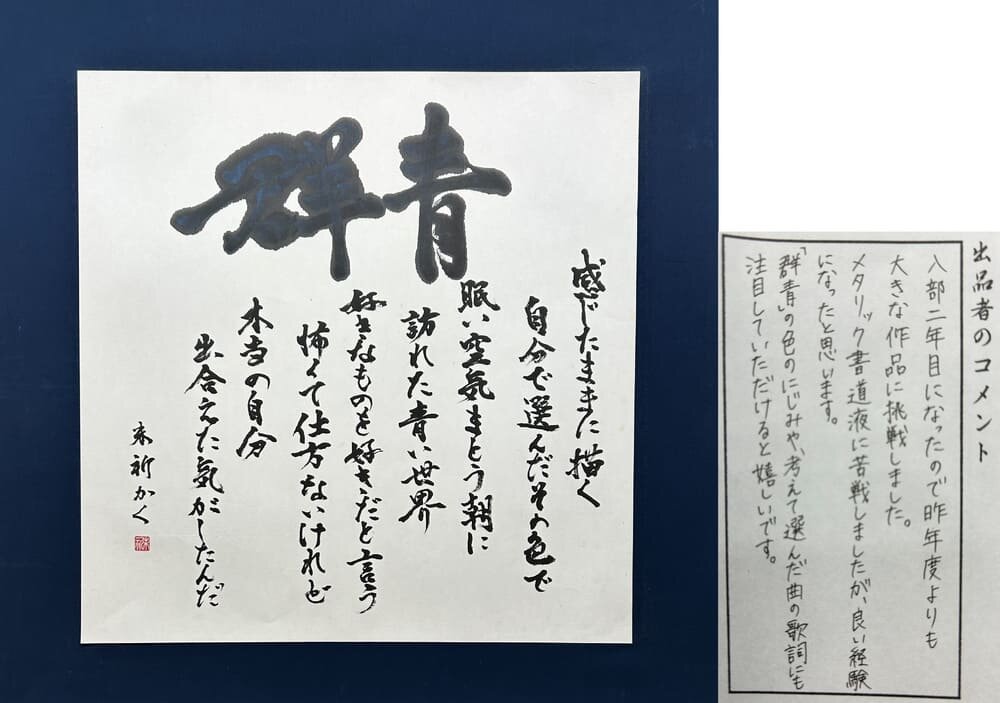 群青
感じたままに描く
自分で選んだその色で
眠い空気まとう朝に
訪れた青い世界
好きなものを好きだと言う
怖くて仕方ないけれど
本当の自分
出合えた気がしたんだ
祈かく
出品者のコメント
入部二年目になったので昨年度よりも
大きな作品に挑戦しました。
メタリック書道液に苦戦しましたが、良い経験
になったと思います。
「群青」の色のにじみや、考えて選んだ曲の歌詞にも
注目していただけると嬉しいです。